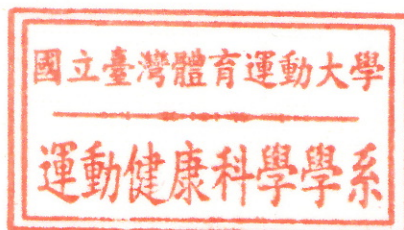 國立臺灣體育運動大學
運動健康科學學系